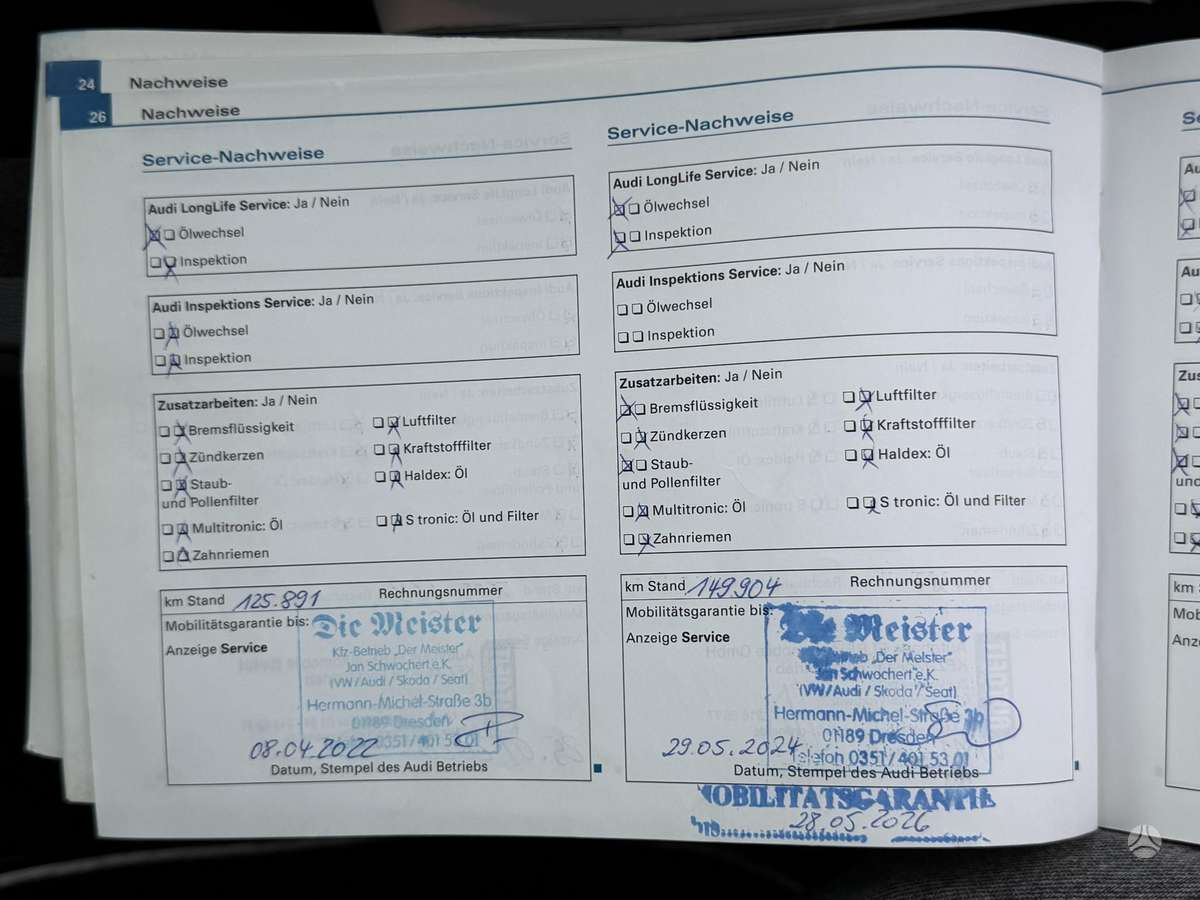 24 Nachweise
26 Nachweise
Service-Nachweise
Audi LongLife Service: Ja / Nein
Ölwechsel
Inspektion
Audi Inspektions Service: Ja / Nein
Ölwechsel
Inspektion
Zusatzarbeiten: Ja / Nein
Bremsflüssigkeit
Luftfilter
Zündkerzen
Kraftstofffilter
Staub-
und Pollenfilter
Haldex: Öl
Multitronic: Öl
S tronic: Öl und Filter
Zahnriemen
km Stand 125.891 Rechnungsnummer
Mobilitätsgarantie bis:
Anzeige Service
Die Meister
Kfz-Betrieb „Der Meister"
Jan Schwochert e.K.
(VW/Audi/Skoda/Seat)
Hermann-Michel-Straße 3b
01189 Dresden
Telefon 0351/401 53 01
08.04.2022
Datum, Stempel des Audi Betriebs
Service-Nachweise
Audi LongLife Service: Ja / Nein
Ölwechsel
Inspektion
Audi Inspektions Service: Ja / Nein
Ölwechsel
Inspektion
Zusatzarbeiten: Ja / Nein
Bremsflüssigkeit
Luftfilter
Zündkerzen
Kraftstofffilter
Staub-
und Pollenfilter
Haldex: Öl
Multitronic: Öl
S tronic: Öl und Filter
Zahnriemen
km Stand 149.904 Rechnungsnummer
Mobilitätsgarantie bis:
Anzeige Service
Die Meister
„Der Meister"
Jan Schwochert e.K.
(VW/Audi/Skoda/Seat)
Hermann-Michel-Straße 3b
01189 Dresden
Telefon 0351/401 53 01
29.05.2024
Datum, Stempel des Audi Betriebs
MOBILITÄTSGARANTIE
28.05.2026